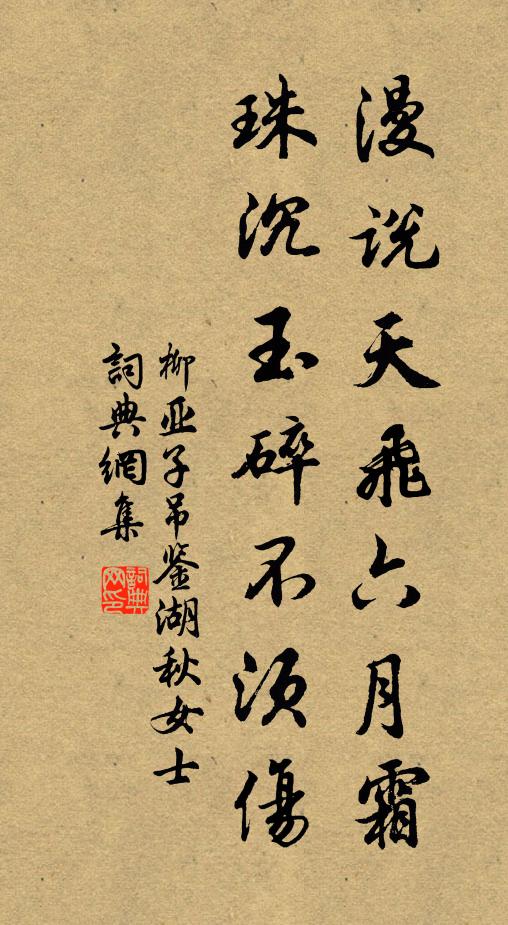 漫説天飛六月霜
珠沉玉碎不須傷
柳亚子吊鉴湖秋女士
詞典網集
詞典网印